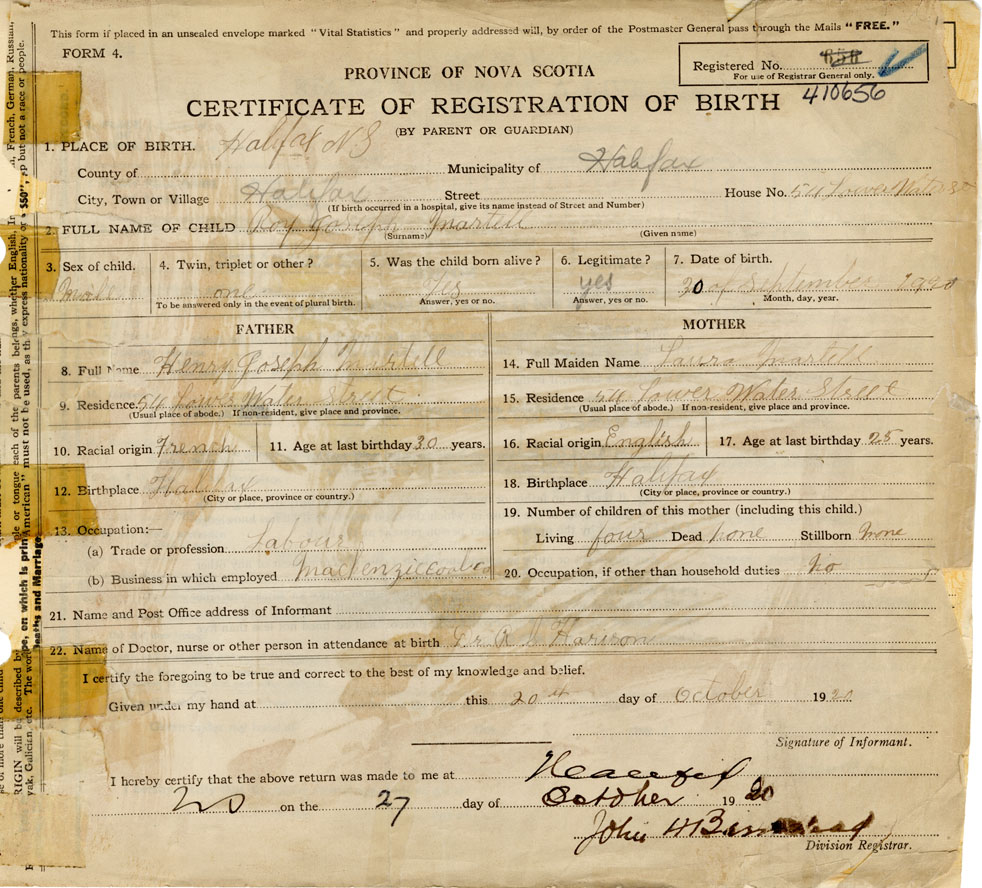 This form if placed in an unsealed envelope marked "Vital Statistics" and properly addressed will, by order of the Postmaster General pass through the Mails "FREE."
FORM 4.
Registered No.
For use of Registrar General only.
410656
PROVINCE OF NOVA SCOTIA
CERTIFICATE OF REGISTRATION OF BIRTH
(BY PARENT OR GUARDIAN)
1. PLACE OF BIRTH. Halifax N S
County of Municipality of Halifax
City, Town or Village Halifax Street House No. 54 Lower Water St
(If birth occurred in a hospital, give its name instead of Street and Number)
2. FULL NAME OF CHILD Roy Joseph Martell
(Surname) (Given name)
3. Sex of child. 4. Twin, triplet or other? 5. Was the child born alive? 6. Legitimate? 7. Date of birth.
one yes yes 30 of September 1920
To be answered only in the event of plural birth. Answer, yes or no. Answer, yes or no. Month, day, year.
FATHER MOTHER
8. Full Name Henry Joseph Martell 14. Full Maiden Name Laura Martell
9. Residence. 54 Lower Water Street 15. Residence 54 Lower Water Street
(Usual place of abode.) If non-resident, give place and province. (Usual place of abode.) If non-resident, give place and province.
10. Racial origin French 11. Age at last birthday 30 years. 16. Racial origin English 17. Age at last birthday 25 years.
12. Birthplace Halifax 18. Birthplace Halifax
(City or place, province or country.) (City or place, province or country.)
13. Occupation:— 19. Number of children of this mother (including this child.)
(a) Trade or profession Labour Living four Dead none Stillborn none
(b) Business in which employed 20. Occupation, if other than household duties No
21. Name and Post Office address of Informant
22. Name of Doctor, nurse or other person in attendance at birth Dr A Harison
I certify the foregoing to be true and correct to the best of my knowledge and belief.
Given under my hand at this 20th day of October 1920
Signature of Informant.
I hereby certify that the above return was made to me at Halifax
NS on the 27 day of October 1920
John H
Division Registrar.